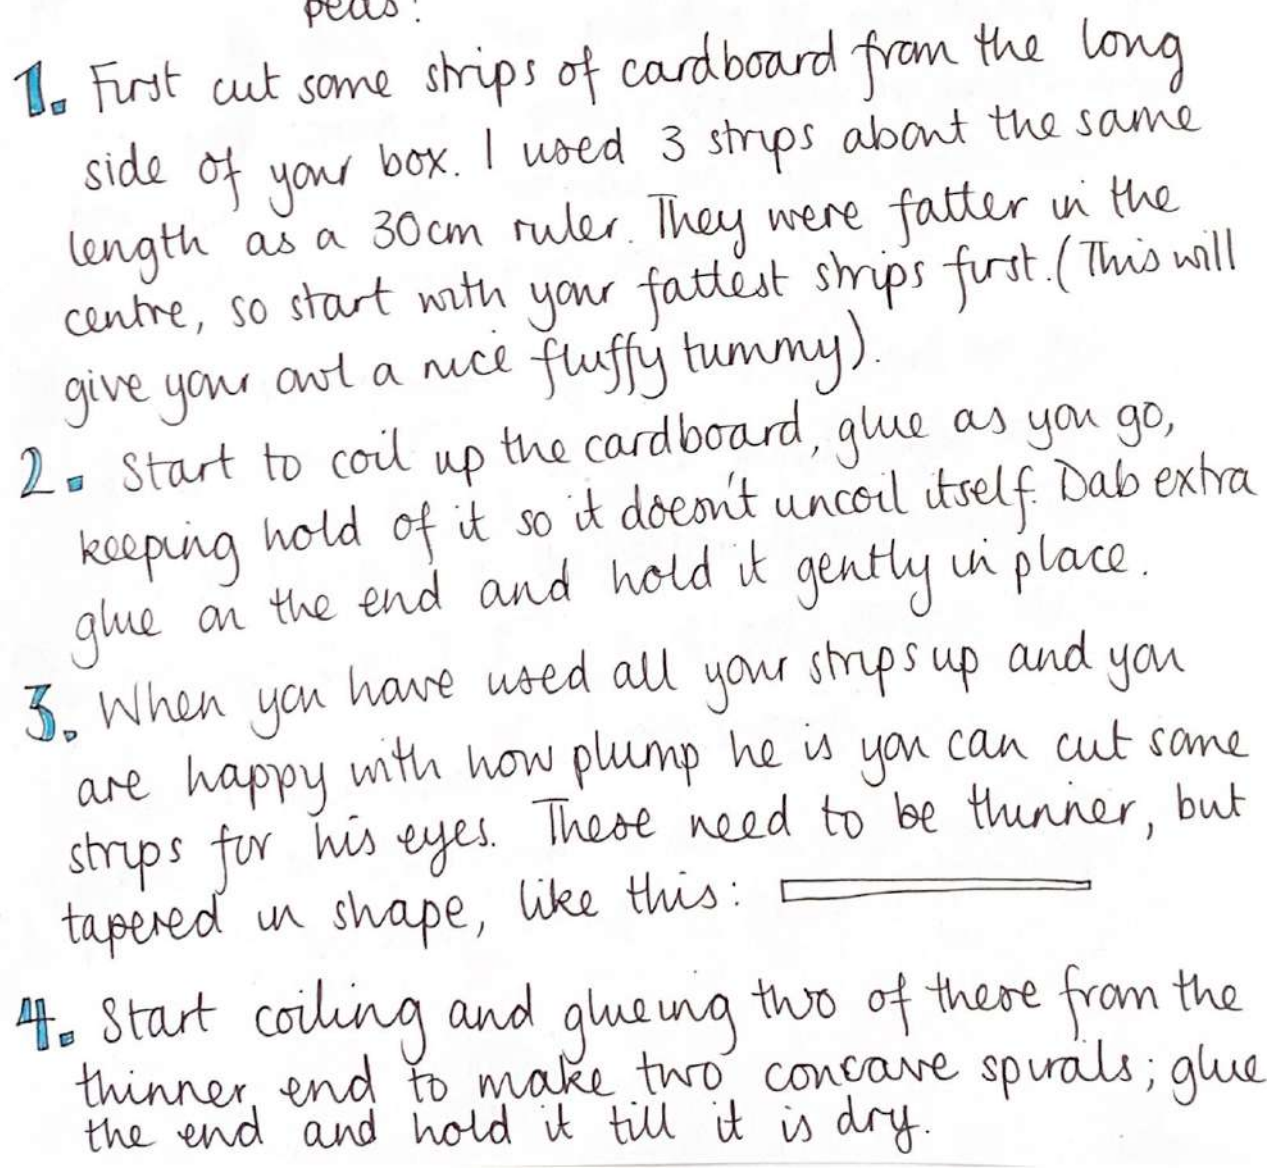 peas!
1. First cut some strips of cardboard from the long
side of your box. I used 3 strips about the same
length as a 30cm ruler. They were fatter in the
centre, so start with your fattest strips first. (This will
give your owl a nice fluffy tummy).
2. Start to coil up the cardboard, glue as you go,
keeping hold of it so it doesn't uncoil itself. Dab extra
glue on the end and hold it gently in place.
3. When you have used all your strips up and you
are happy with how plump he is you can cut some
strips for his eyes. These need to be thinner, but
tapered in shape, like this:
4. Start coiling and glueing two of these from the
thinner end to make two concave spirals; glue
the end and hold it till it is dry.